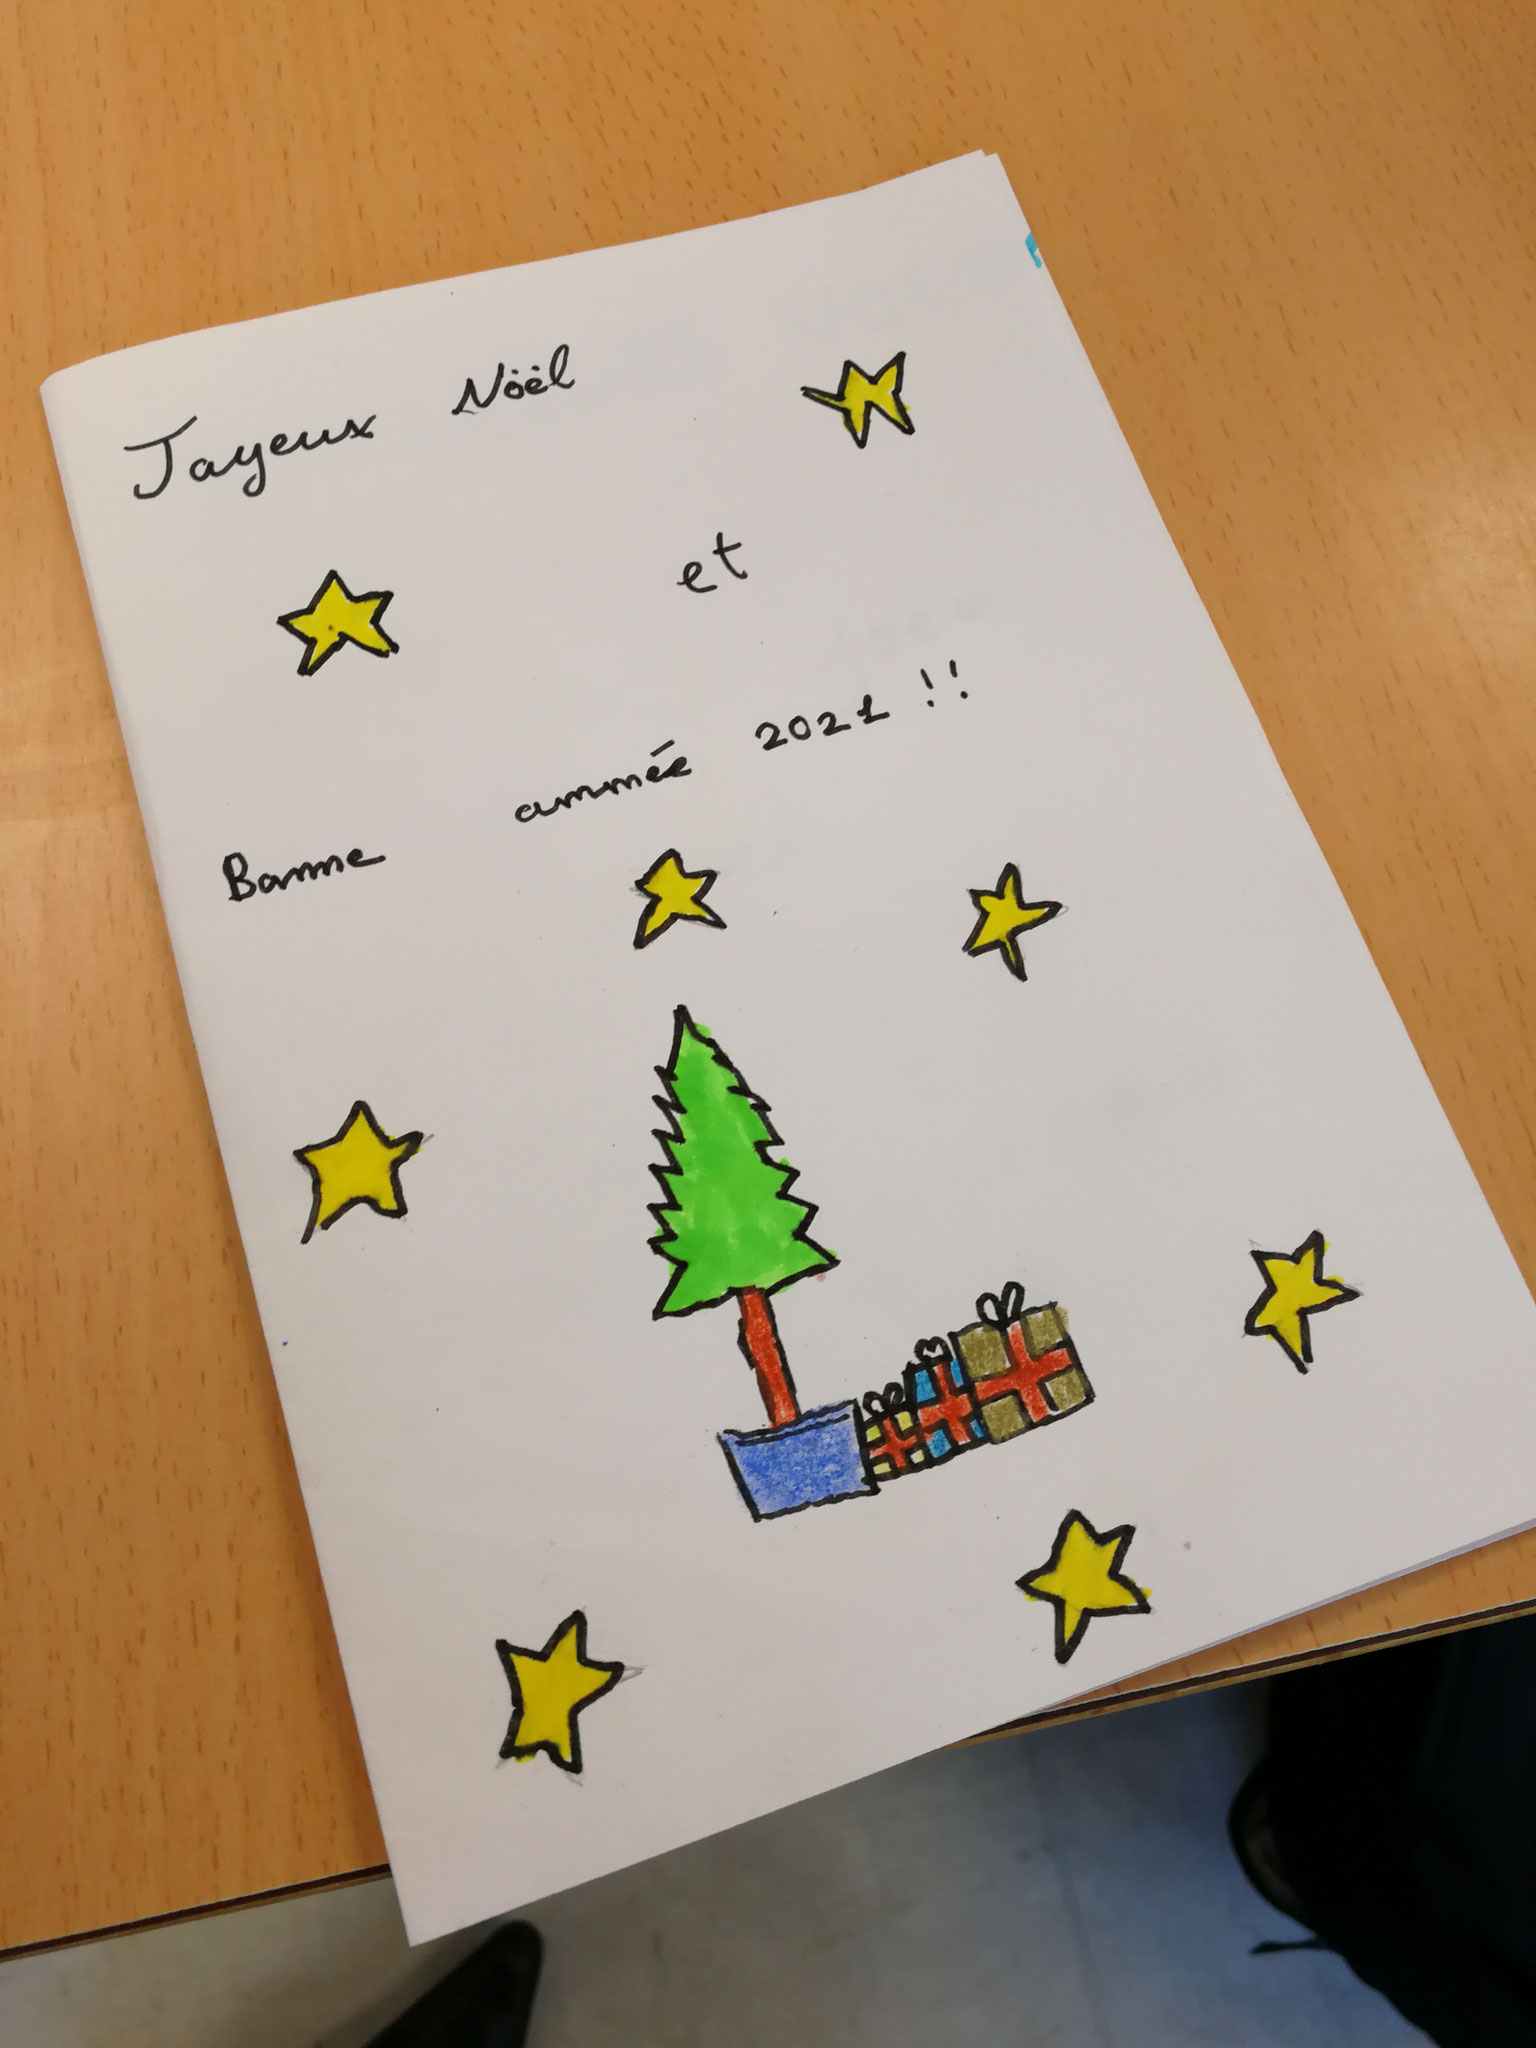 Jayeux Nöël
et
Banne ammée 2021 !!